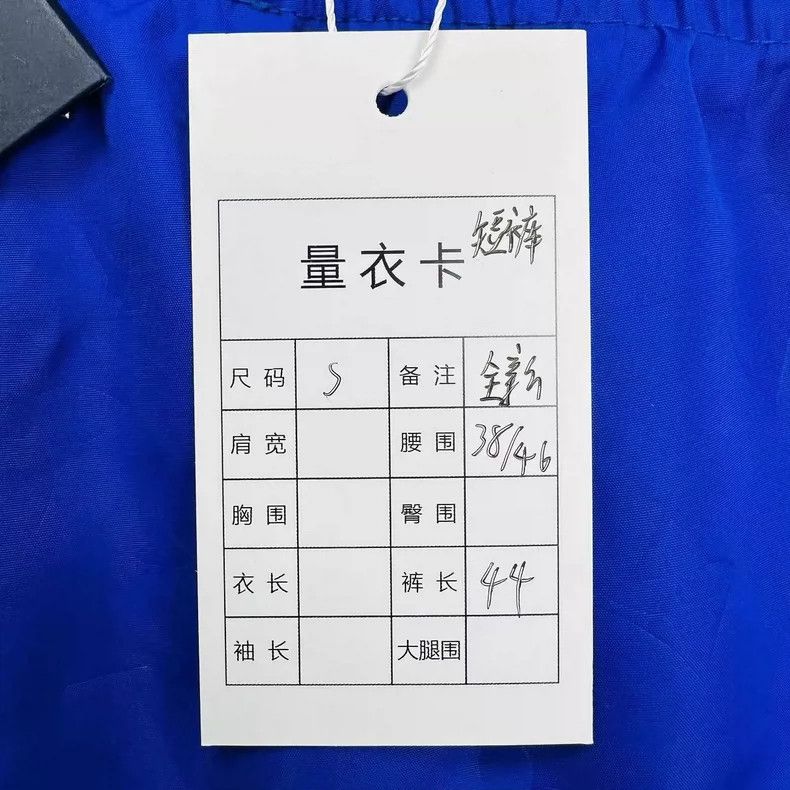 量衣卡 短裤
尺码 S 备注 全新
肩宽 腰围 38/46
胸围 臀围
衣长 裤长 44
袖长 大腿围